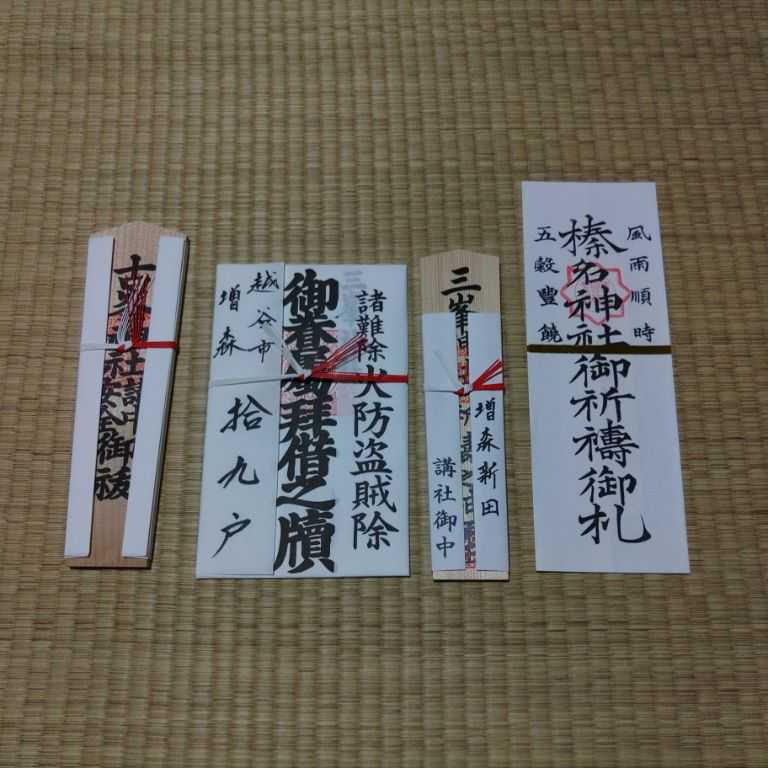 風雨順時
榛名神社御祈禱御札
五穀豊饒
三峯
増森新田
講社御中
諸難除火防盗賊除
御眷属拝借之牘
越谷市
増森
拾九戸
社講中安全御祓